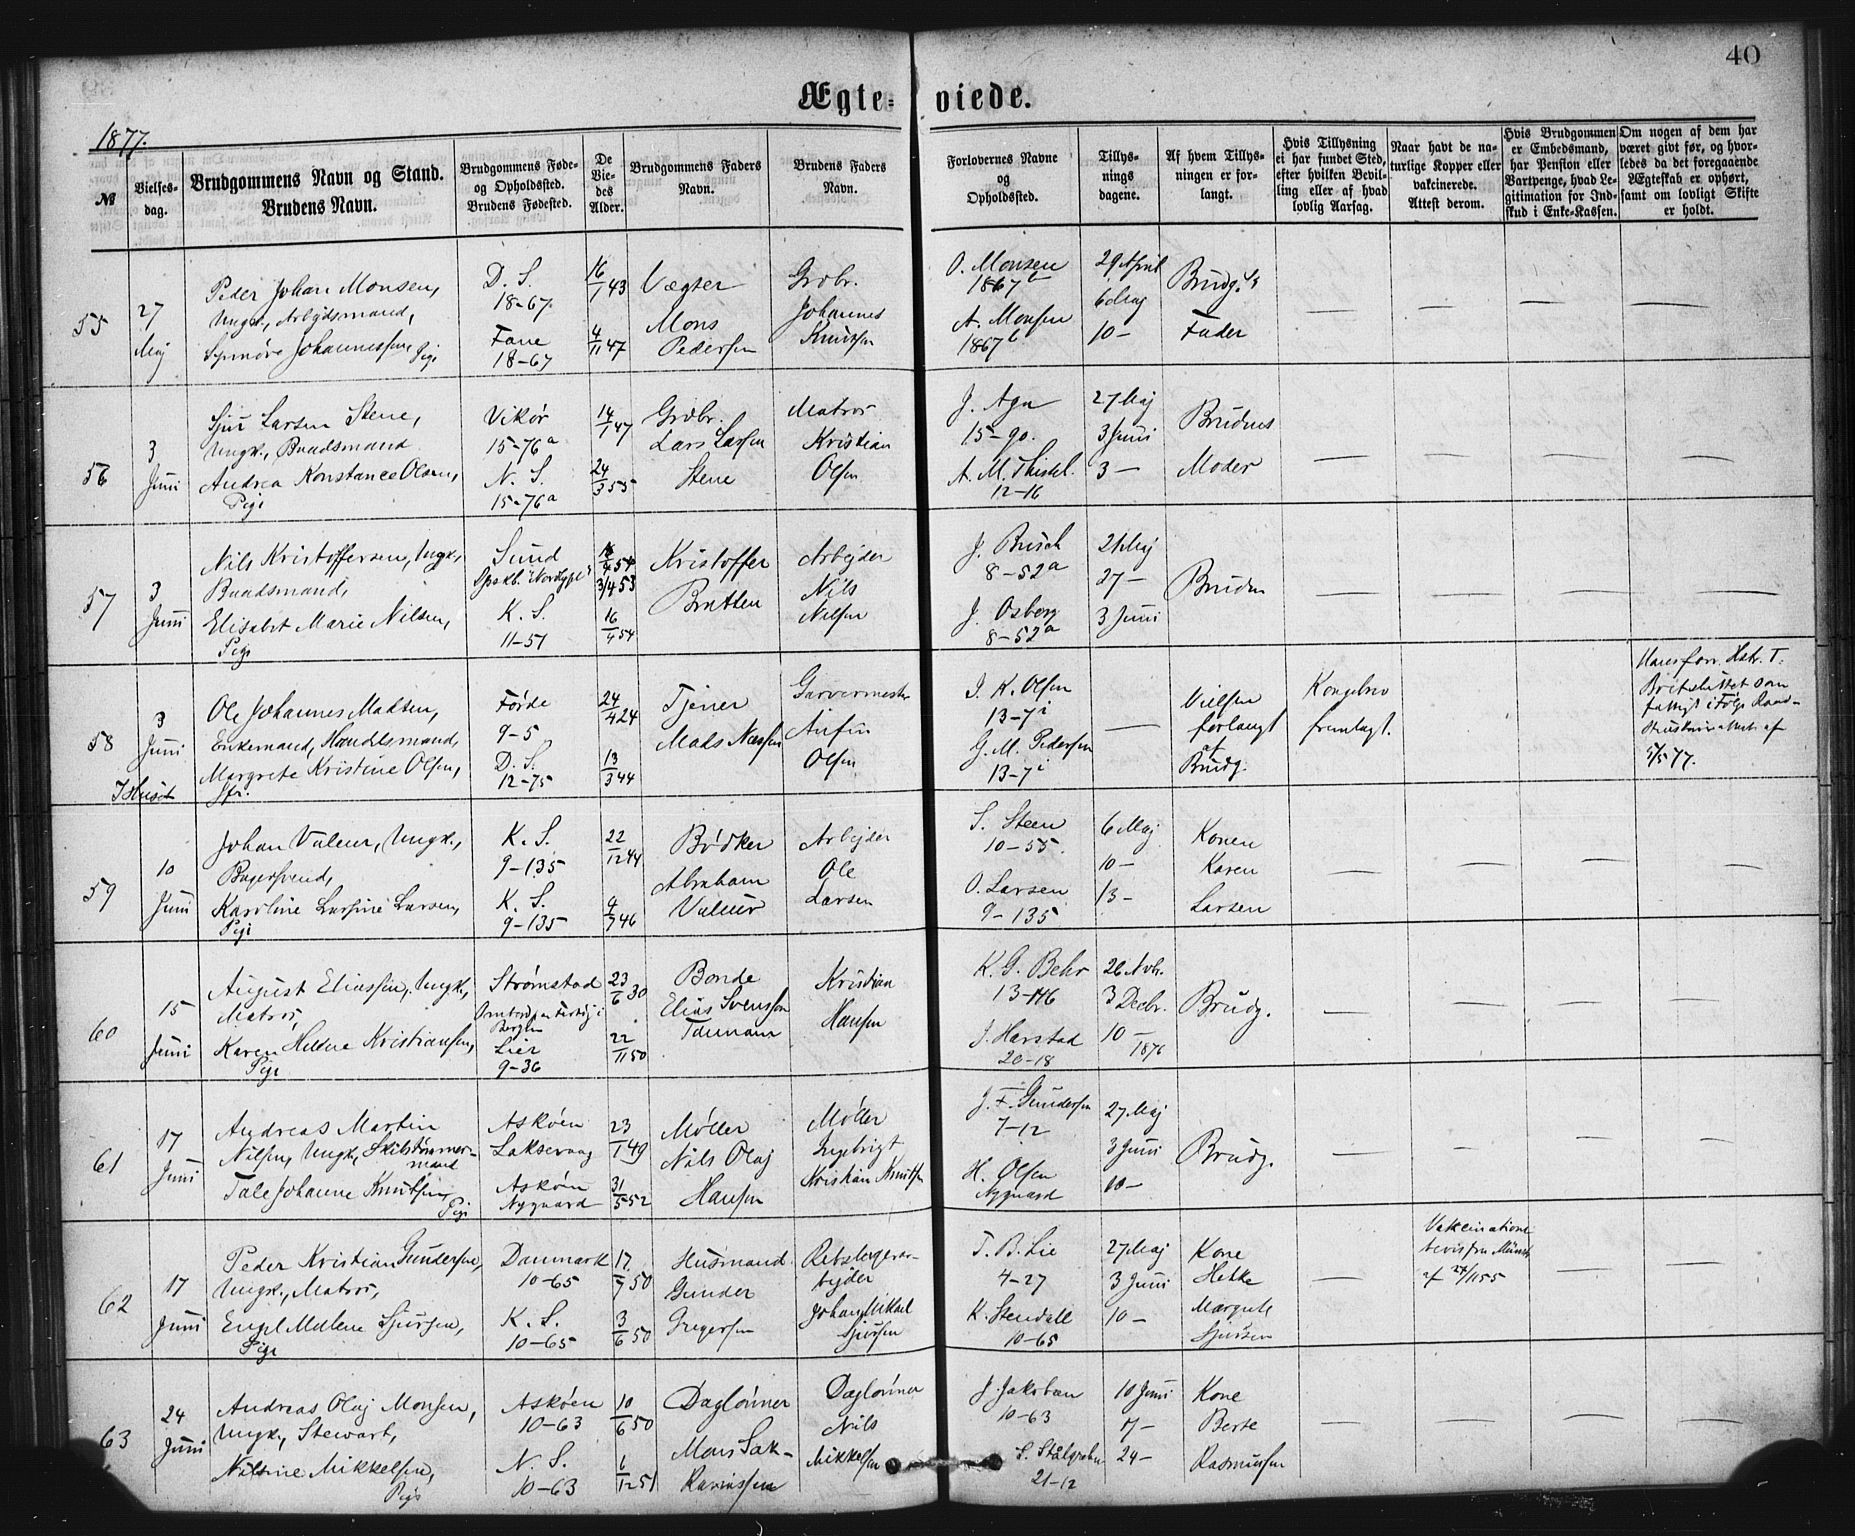 40
Ægte- viede.
1877.
№
Vielses-
dag.
Brudgommens Navn og Stand.
Brudens Navn.
Brudgommens Føde-
og Opholdssted.
Brudens Fødested.
De
Vie-
des
Alder.
Brudgommens Faders
Navn.
Brudens Faders
Navn.
Forlovernes Navne
og
Opholdssted.
Tillys-
nings
dagene.
Af hvem Tillys-
ningen er for-
langt.
Hvis Tillysning
ei har fundet Sted,
efter hvilken Bevil-
ling eller af hvad
lovlig Aarsag.
Naar havt de na-
turlige Kopper eller
vakcinerede.
Attest derom.
Hvis Brudgommen
er Embedsmand,
har Pension eller
Vartpenge, hvad Le-
gitimation for Ind-
skud i Enke-Kassen.
Om nogen af dem har
været givt før, og hvor-
ledes da det foregaaende
Ægteskab er ophørt,
samt om lovligt Skifte
er holdt.
55
27
Maj
Peder Johan Monsen,
Ungk., Arbejdsmand,
Synnøve Johannessen, Pige
D. S.
18-67.
Fane
18-67
16/1 43
4/11 47
Vægter
Mons
Pedersen
Grdbr.
Johannes
Knutsen
O. Monsen
1867 b
A. Monsen
1867 b
29 April
6 Maj
10 -
Brudg.s
Fader
56
3
Juni
Sjur Larsen Stene,
Ungk., Baadsmand
Andrea Konstance Olsen,
Pige
Vikør
15-76a
N. S.
15-76a
14/1 47
24/3 55
Grdbr.
Lars Larsen
Stene
Matros
Kristian
Olsen
J. Aga
15-90.
A. M. Thistel.
12-16
27 Maj
3 Juni
3 -
Brudens
Moder
57
3
Juni
Nils Kristoffersen, Ungk.,
Baadsmand,
Elisabet Marie Nilsen,
Pige
Sund
K. S.
11-51
3/4 53
16/4 54
Kristoffer
Bratten
Arbejder
Nils
Nilsen
J. Busch
8-52a
J. Osberg
8-52a
21 Maj
27 -
3 Juni
Bruden
58
3
Juni
I Huset
Ole Johannes Madsen,
Enkemand, Handelsmand,
Margrete Kristine Olsen,
Førde
9-5
D. S.
12-75
24/4 24
13/3 44
Tjener
Mads Næssen
Garvermester
Anfin
Olsen
J. K. Olsen
13-7i
G. M. Pedersen
13-7i
Vielsen
forlangt
af
Brudg.
Kongebrev
fremlagt.
59
10
Juni
Johan Valeur, Ungk.,
Bagersvend,
Karoline Larsine Larsen,
Pige
K. S.
9-135
K. S.
9-135
22/12 44
9/7 46
Bødker
Abraham
Valeur
Arbejder
Ole
Larsen
S. Steen
10-55.
O. Larsen
9-135
6 Maj
10 -
13 -
Konen
Karen
Larsen
60
15
Juni
August Eliassen, Ungk.,
Matros,
Karen Helene Kristiansen,
Pige
Strømstad
Bergen
Lier
9-36
23/6 30
22/11 50
Bonde
Elias Svensson
Tanum
Kristian
Hansen
K. G. Behr
13-146
J. Harstad
20-18
26 Novbr.
3 Decbr.
10 - 1876
Brudg.
61
17
Juni
Andreas Martin
Nilsen, Ungk., Skibstømmer-
mand
Tale Johanne Knutsen,
Pige
Askøen
Laksevaag
Askøen
Nygaard
23/1 49
31/5 52
Møller
Nils Olaj
Hansen
Møller
Ingebrigt
Kristian Knutsen
J. F. Gundersen
7-12
H. Olsen
Nygaard
27 Maj
3 Juni
10 -
Brudg.
62
17
Juni
Peder Kristian Gundersen,
Ungk., Matros,
Engel Malene Sjursen,
Pige
Danmark
10-65
K. S.
10-65
17/7 50
3/6 50
Husmand
Gunder
Gregersen
Rebslagerar-
bejder
Johan Mikael
Sjursen
T. B. Lie
4-27
K. Stendall
10-65
27 Maj
3 Juni
10 -
Kone
Margrete
Sjursen
Vakcinations-
bevis fra
24/11 55
63
24
Juni
Andreas Olaj Monsen,
Ungk., Stewart,
Nilsine Mikkelsen,
Pige
Askøen
10-63
N. S.
10-63
10/6 50
1/12 51
Daglønner
Mons Sak-
kariassen
Daglønner
Nils
Mikkelsen
J. Jakobsen
10-63
21-12
10 Juni
17 -
24 -
Kone
Berte
Rasmussen